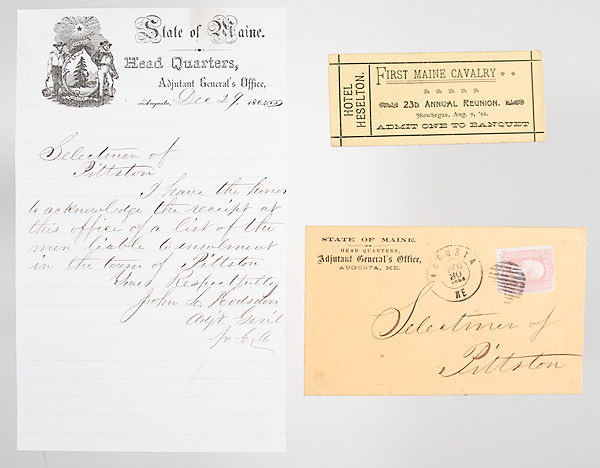 State of Maine.
Head Quarters,
Adjutant General's Office,
Augusta, Dec 29, 186
Selectmen of
Pittston
I have the honor
to acknowledge the receipt at
this office of a list of the
men liable to enrolment
in the town of Pittston
Yours Respectfully
John L. Hodsdon
Adjt Genl
HOTEL
HESELTON.
FIRST MAINE CAVALRY
23D ANNUAL REUNION.
Skowhegan, Aug. 9, '94.
ADMIT ONE TO BANQUET
STATE OF MAINE.
HEAD QUARTERS,
Adjutant General's Office,
AUGUSTA, ME.
AUGUSTA
DEC
30
1864
ME
Selectmen of
Pittston